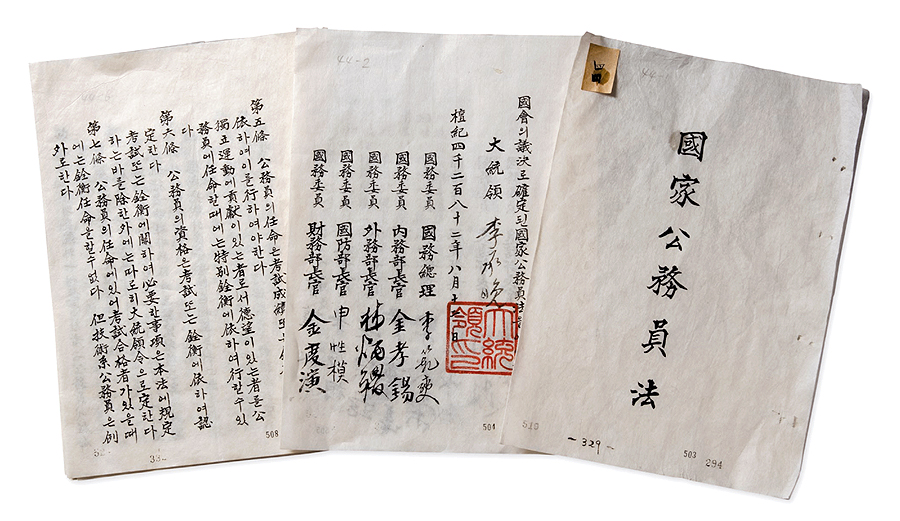 國家公務員法
- 329 -
503 294
44-2
國會의議決로確定된國家公務員法
大統領 李承晩
檀紀四千二百八十二年八月十二日
大統領印
國務委員 國務總理 李範奭
國務委員 內務部長官 金孝錫
國務委員 外務部長官 林炳稷
國務委員 國防部長官 申性模
國務委員 財務部長官 金度演
504 510
第五條 公務員의任命은考試成績
依하여이를行하여야한다
獨立運動에貢獻이있는者로서德望이있는者를公
務員에任命할때에는特別銓衡에依하여行할수있
다
第六條 公務員의資格은考試또는銓衡에依하여認
定한다
考試또는銓衡에關하여必要한事項은本法에規定
하는바를除한外에는따로히大統領令으로定한다
第七條 公務員의任命에있어考試合格者가있을때
에는銓衡任命을할수없다 但技術系公務員은例
外로한다
508